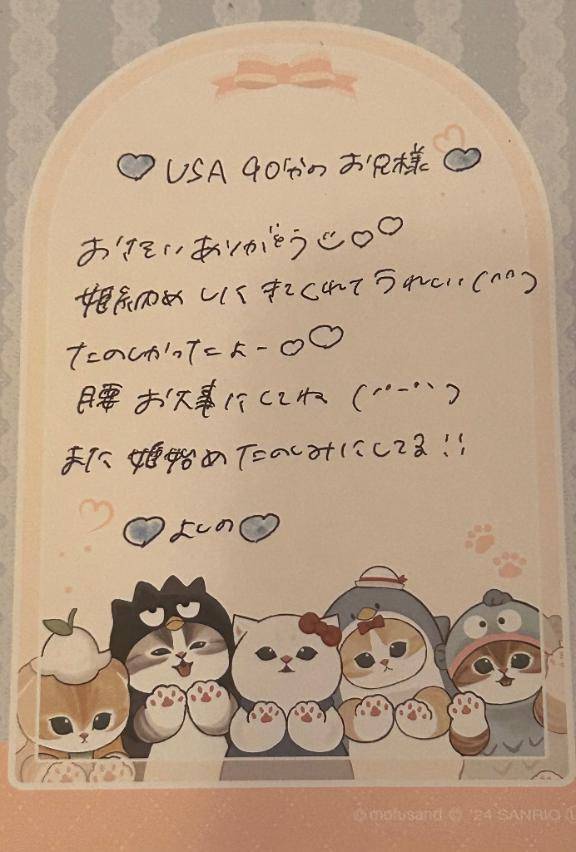 ♡ USA 90分の お兄様 ♡
おさそいありがとう ♡♡
姫納め しに きてくれて うれしい (^^)
たのしかったよー ♡♡
腰 お大事に してね
また 姫始め たのしみにしてる!!
♡ よしの ♡
©mofusand © '24 SANRIO